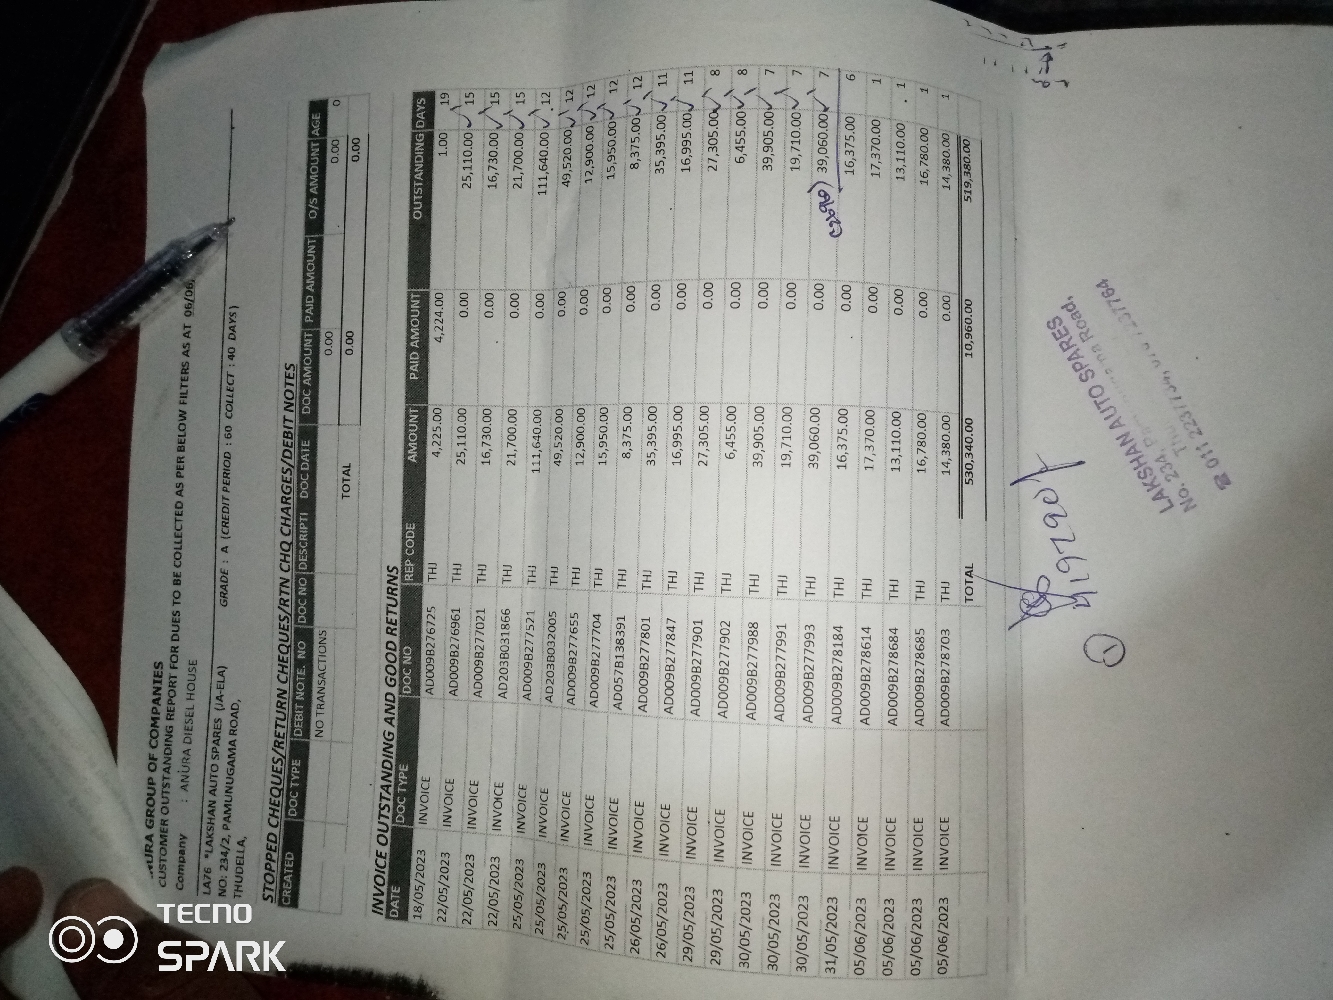 URA GROUP OF COMPANIES
CUSTOMER OUTSTANDING REPORT FOR DUES TO BE COLLECTED AS PER BELOW FILTERS AS AT 06/06
Company : ANURA DIESEL HOUSE
LA76 *LAKSHAN AUTO SPARES (JA-ELA) GRADE : A (CREDIT PERIOD : 60 COLLECT : 40 DAYS)
NO: 234/2, PAMUNUGAMA ROAD,
THUDELLA,
STOPPED CHEQUES/RETURN CHEQUES/RTN CHQ CHARGES/DEBIT NOTES
CREATED DOC TYPE DEBIT NOTE. NO DOC NO DESCRIPTI DOC DATE DOC AMOUNT PAID AMOUNT O/S AMOUNT AGE
NO TRANSACTIONS 0.00 0.00 0
TOTAL 0.00 0.00
INVOICE OUTSTANDING AND GOOD RETURNS
DATE DOC TYPE DOC NO REP CODE AMOUNT PAID AMOUNT OUTSTANDING DAYS
18/05/2023 INVOICE AD009B276725 THJ 4,225.00 4,224.00 1.00 19
22/05/2023 INVOICE AD009B276961 THJ 25,110.00 0.00 25,110.00 15
22/05/2023 INVOICE AD009B277021 THJ 16,730.00 0.00 16,730.00 15
22/05/2023 INVOICE AD203B031866 THJ 21,700.00 0.00 21,700.00 15
25/05/2023 INVOICE AD009B277521 THJ 111,640.00 0.00 111,640.00 12
25/05/2023 INVOICE AD203B032005 THJ 49,520.00 0.00 49,520.00 12
25/05/2023 INVOICE AD009B277655 THJ 12,900.00 0.00 12,900.00 12
25/05/2023 INVOICE AD009B277704 THJ 15,950.00 0.00 15,950.00 12
25/05/2023 INVOICE AD057B138391 THJ 8,375.00 0.00 8,375.00 12
26/05/2023 INVOICE AD009B277801 THJ 35,395.00 0.00 35,395.00 11
26/05/2023 INVOICE AD009B277847 THJ 16,995.00 0.00 16,995.00 11
29/05/2023 INVOICE AD009B277901 THJ 27,305.00 0.00 27,305.00 8
29/05/2023 INVOICE AD009B277902 THJ 6,455.00 0.00 6,455.00 8
30/05/2023 INVOICE AD009B277988 THJ 39,905.00 0.00 39,905.00 7
30/05/2023 INVOICE AD009B277991 THJ 19,710.00 0.00 19,710.00 7
30/05/2023 INVOICE AD009B277993 THJ 39,060.00 0.00 39,060.00 7
31/05/2023 INVOICE AD009B278184 THJ 16,375.00 0.00 16,375.00 6
05/06/2023 INVOICE AD009B278614 THJ 17,370.00 0.00 17,370.00 1
05/06/2023 INVOICE AD009B278684 THJ 13,110.00 0.00 13,110.00 1
05/06/2023 INVOICE AD009B278685 THJ 16,780.00 0.00 16,780.00 1
05/06/2023 INVOICE AD009B278703 THJ 14,380.00 0.00 14,380.00 1
TOTAL 530,340.00 10,960.00 519,380.00
1
LAKSHAN AUTO SPARES
No. 234, Road,
011 2231
TECNO
SPARK